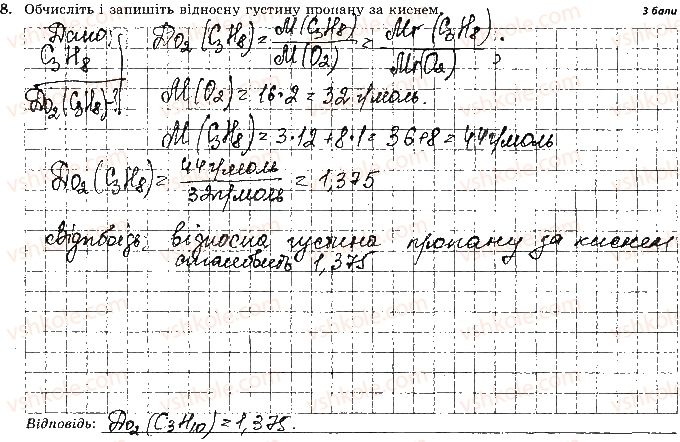 8. Обчисліть і запишіть відносну густину пропану за киснем. 3 бали
Дано: C₃H₈
Do₂(C₃H₈)-?
Do₂(C₃H₈) = M(C₃H₈)/M(O₂) = Mr(C₃H₈)/Mr(O₂);
M(O₂) = 16·2 = 32 г/моль.
M(C₃H₈) = 3·12+8·1 = 36+8 = 44 г/моль
Do₂(C₃H₈) = 44 г/моль/32 г/моль = 1,375
Відповідь: відносна густина пропану за киснем
становить 1,375
Відповідь: Do₂(C₃H₁₀) = 1,375.